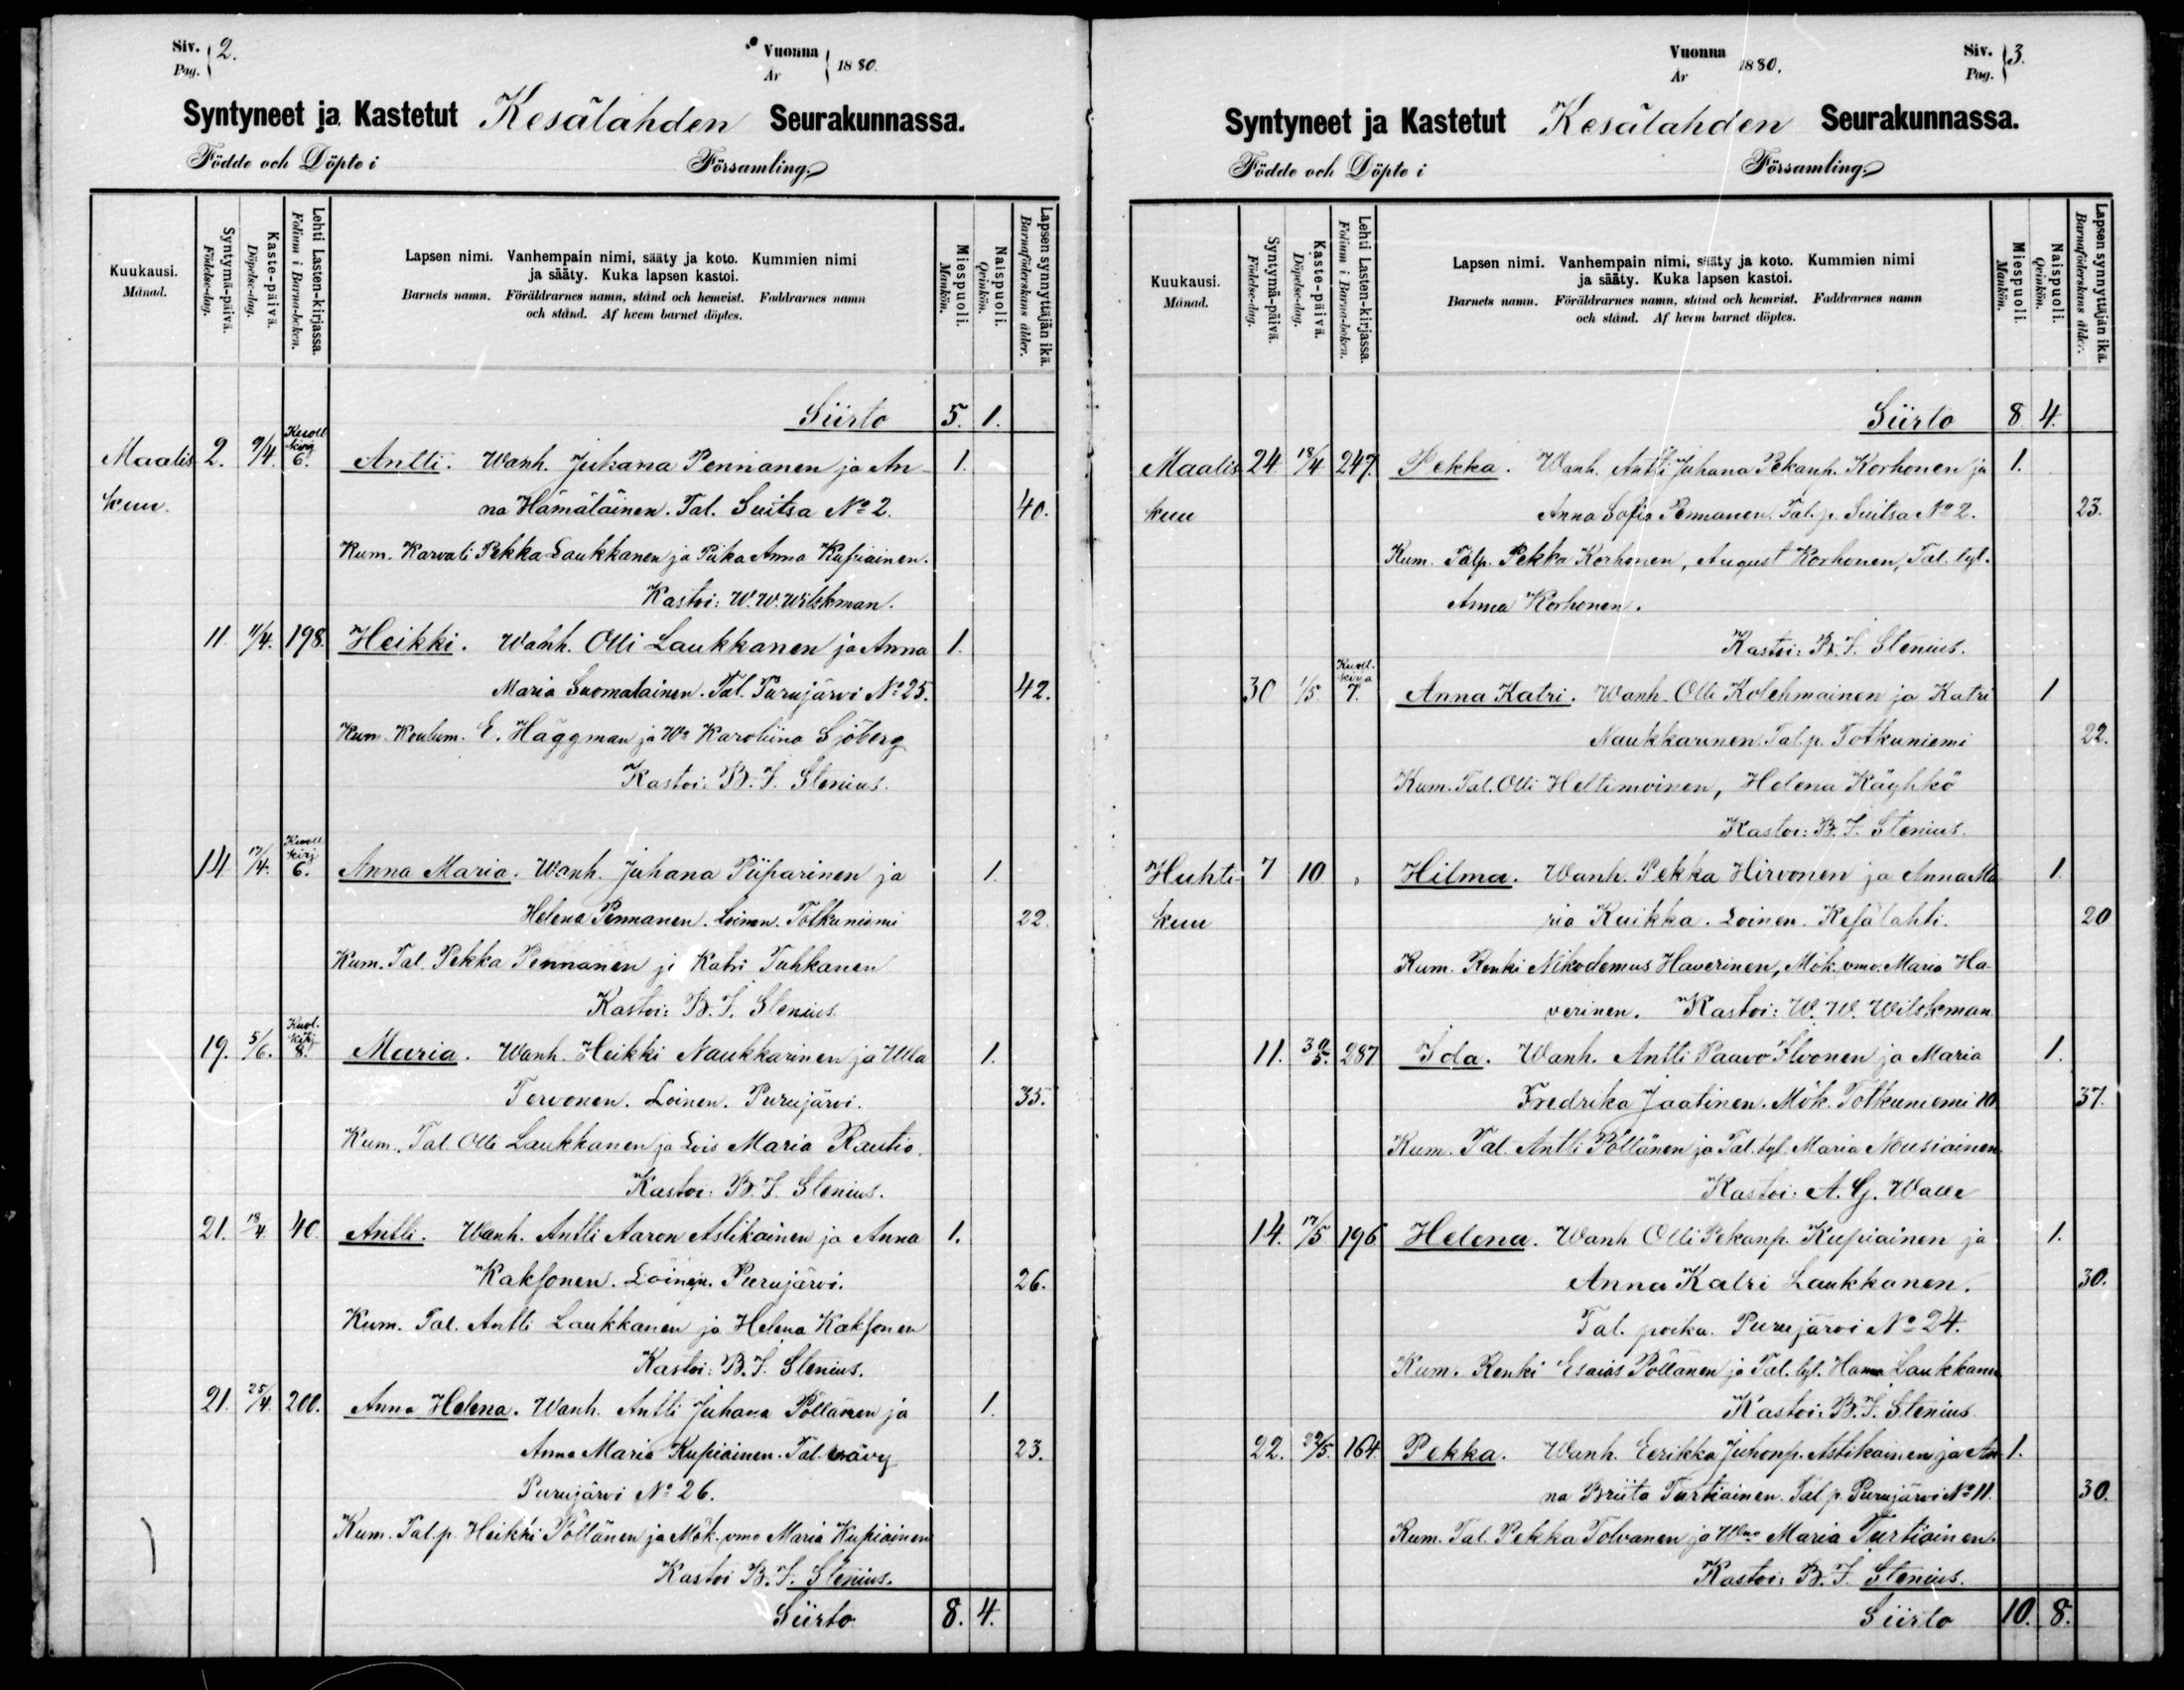 Siv. Pag. 2.
Vuonna År 1880.
Syntyneet ja Kastetut Kesälahden Seurakunnassa.
Födde och Döpte i Församling.
Kuukausi. Månad.
Syntymä-päivä. Födelse-dag.
Kaste-päivä. Döpelse-dag.
Lehti Lasten-kirjassa. Folium i Barna-boken.
Lapsen nimi. Vanhempain nimi, sääty ja koto. Kummien nimi
ja sääty. Kuka lapsen kastoi.
Barnets namn. Föräldrarnes namn, stånd och hemvist. Faddrarnes namn
och stånd. Af hvem barnet döptes.
Miespuoli. Mankön.
Naispuoli. Qvinkön.
Lapsen synnyttäjän ikä. Barnaföderskans ålder.
Siirto 5. 1.
Maalis 2. 9/4. 6. Antti. Wanh. Juhana Pennanen ja An- 1.
kuu. na Hämäläinen. Tal. Suitsa No 2. 40.
Kum. Karvali Pekka Laukkanen ja Piika Anna Kupiainen.
Kastoi: W. W. Wilskman.
11. 11/4. 198. Heikki. Wanh. Olli Laukkanen ja Anna 1.
Maria Suomalainen. Tal. Purujärvi No 25. 42.
Kum. Koulum. E. Häggman ja Wa Karoliina Sjöberg
Kastoi: B. J. Stenius.
14 17/4. 6. Anna Maria. Wanh. Juhana Piiparinen ja 1.
Helena Pennanen. Loinen. Totkuniemi 22.
Kum. Tal. Pekka Pennanen ja Katri Tuhkanen
Kastoi: B. J. Stenius.
19. 5/6. 8. Maria. Wanh. Heikki Naukkarinen ja Ulla 1.
Tervonen. Loinen. Purujärvi. 35.
Kum. Tal. Olli Laukkanen ja Lois Maria Rautio.
Kastoi: B. J. Stenius.
21. 18/4. 40. Antti. Wanh. Antti Aaron Astikainen ja Anna 1.
Kaksonen. Loinen. Purujärvi. 26.
Kum. Tal. Antti Laukkanen ja Helena Kaksonen
Kastoi: B. J. Stenius.
21. 25/4. 200. Anna Helena. Wanh. Antti Juhana Pöllänen ja 1.
Anna Maria Kupiainen. Tal. vävy 23.
Purujärvi No 26.
Kum. Tal. p. Heikki Pöllänen ja Mök. vmo Maria Kupiainen
Kastoi B. J. Stenius.
Siirto 8. 4.
Vuonna År 1880.
Siv. Pag. 3.
Syntyneet ja Kastetut Kesälahden Seurakunnassa.
Födde och Döpte i Församling.
Kuukausi. Månad.
Syntymä-päivä. Födelse-dag.
Kaste-päivä. Döpelse-dag.
Lehti Lasten-kirjassa. Folium i Barna-boken.
Lapsen nimi. Vanhempain nimi, sääty ja koto. Kummien nimi
ja sääty. Kuka lapsen kastoi.
Barnets namn. Föräldrarnes namn, stånd och hemvist. Faddrarnes namn
och stånd. Af hvem barnet döptes.
Miespuoli. Mankön.
Naispuoli. Qvinkön.
Lapsen synnyttäjän ikä. Barnaföderskans ålder.
Siirto 8 4.
Maalis 24 18/4 247. Pekka. Wanh. Antti Juhana Pekanp. Korhonen ja 1.
kuu Anna Sofia Pennanen. Tal. p. Suitsa No 2. 23.
Kum. Talp. Pekka Korhonen, August Korhonen, Tal. tyt.
Anna Korhonen.
Kastoi: B. J. Stenius.
30 1/5. 7. Anna Katri. Wanh. Olli Kolehmainen ja Katri 1
Naukkarinen. Tal. p. Totkuniemi 22.
Kum. Tal. Olli Heltimoinen, Helena Käyhkö
Kastoi: B. J. Stenius.
Huhti- 7 10 Hilma. Wanh. Pekka Hirvonen ja Anna Ma 1.
kuu ria Kuikka. Loinen. Kesälahti. 20
Kum. Renki Nikodemus Haverinen, Mök. vmo. Maria Ha-
verinen. Kastoi: W. W. Wilskman
11. 30/5. 287 Ida. Wanh. Antti Paavo Ilvonen ja Maria 1.
Fredrika Jaatinen. Mök. Totkuniemi 10 37.
Kum. Tal. Antti Pöllänen ja Tal. tyt. Maria Nousiainen.
Kastoi: A. G. Walle
14. 17/5 196 Helena. Wanh Olli Pekanp. Kupiainen ja 1.
Anna Katri Laukkanen. 30.
Tal. poika. Purujärvi No 24.
Kum. Renki Esaias Pöllänen ja Tal. tyt. Hanna Laukkanen
Kastoi: B. J. Stenius.
22. 29/5. 164. Pekka. Wanh. Eerikka Juhonp. Astikainen ja An 1.
na Briita Turtiainen. Tal. p. Purujärvi No 11. 30.
Kum. Tal. Pekka Tolvanen ja Wmo Maria Turtiainen.
Kastoi: B. J. Stenius.
Siirto 10. 8.